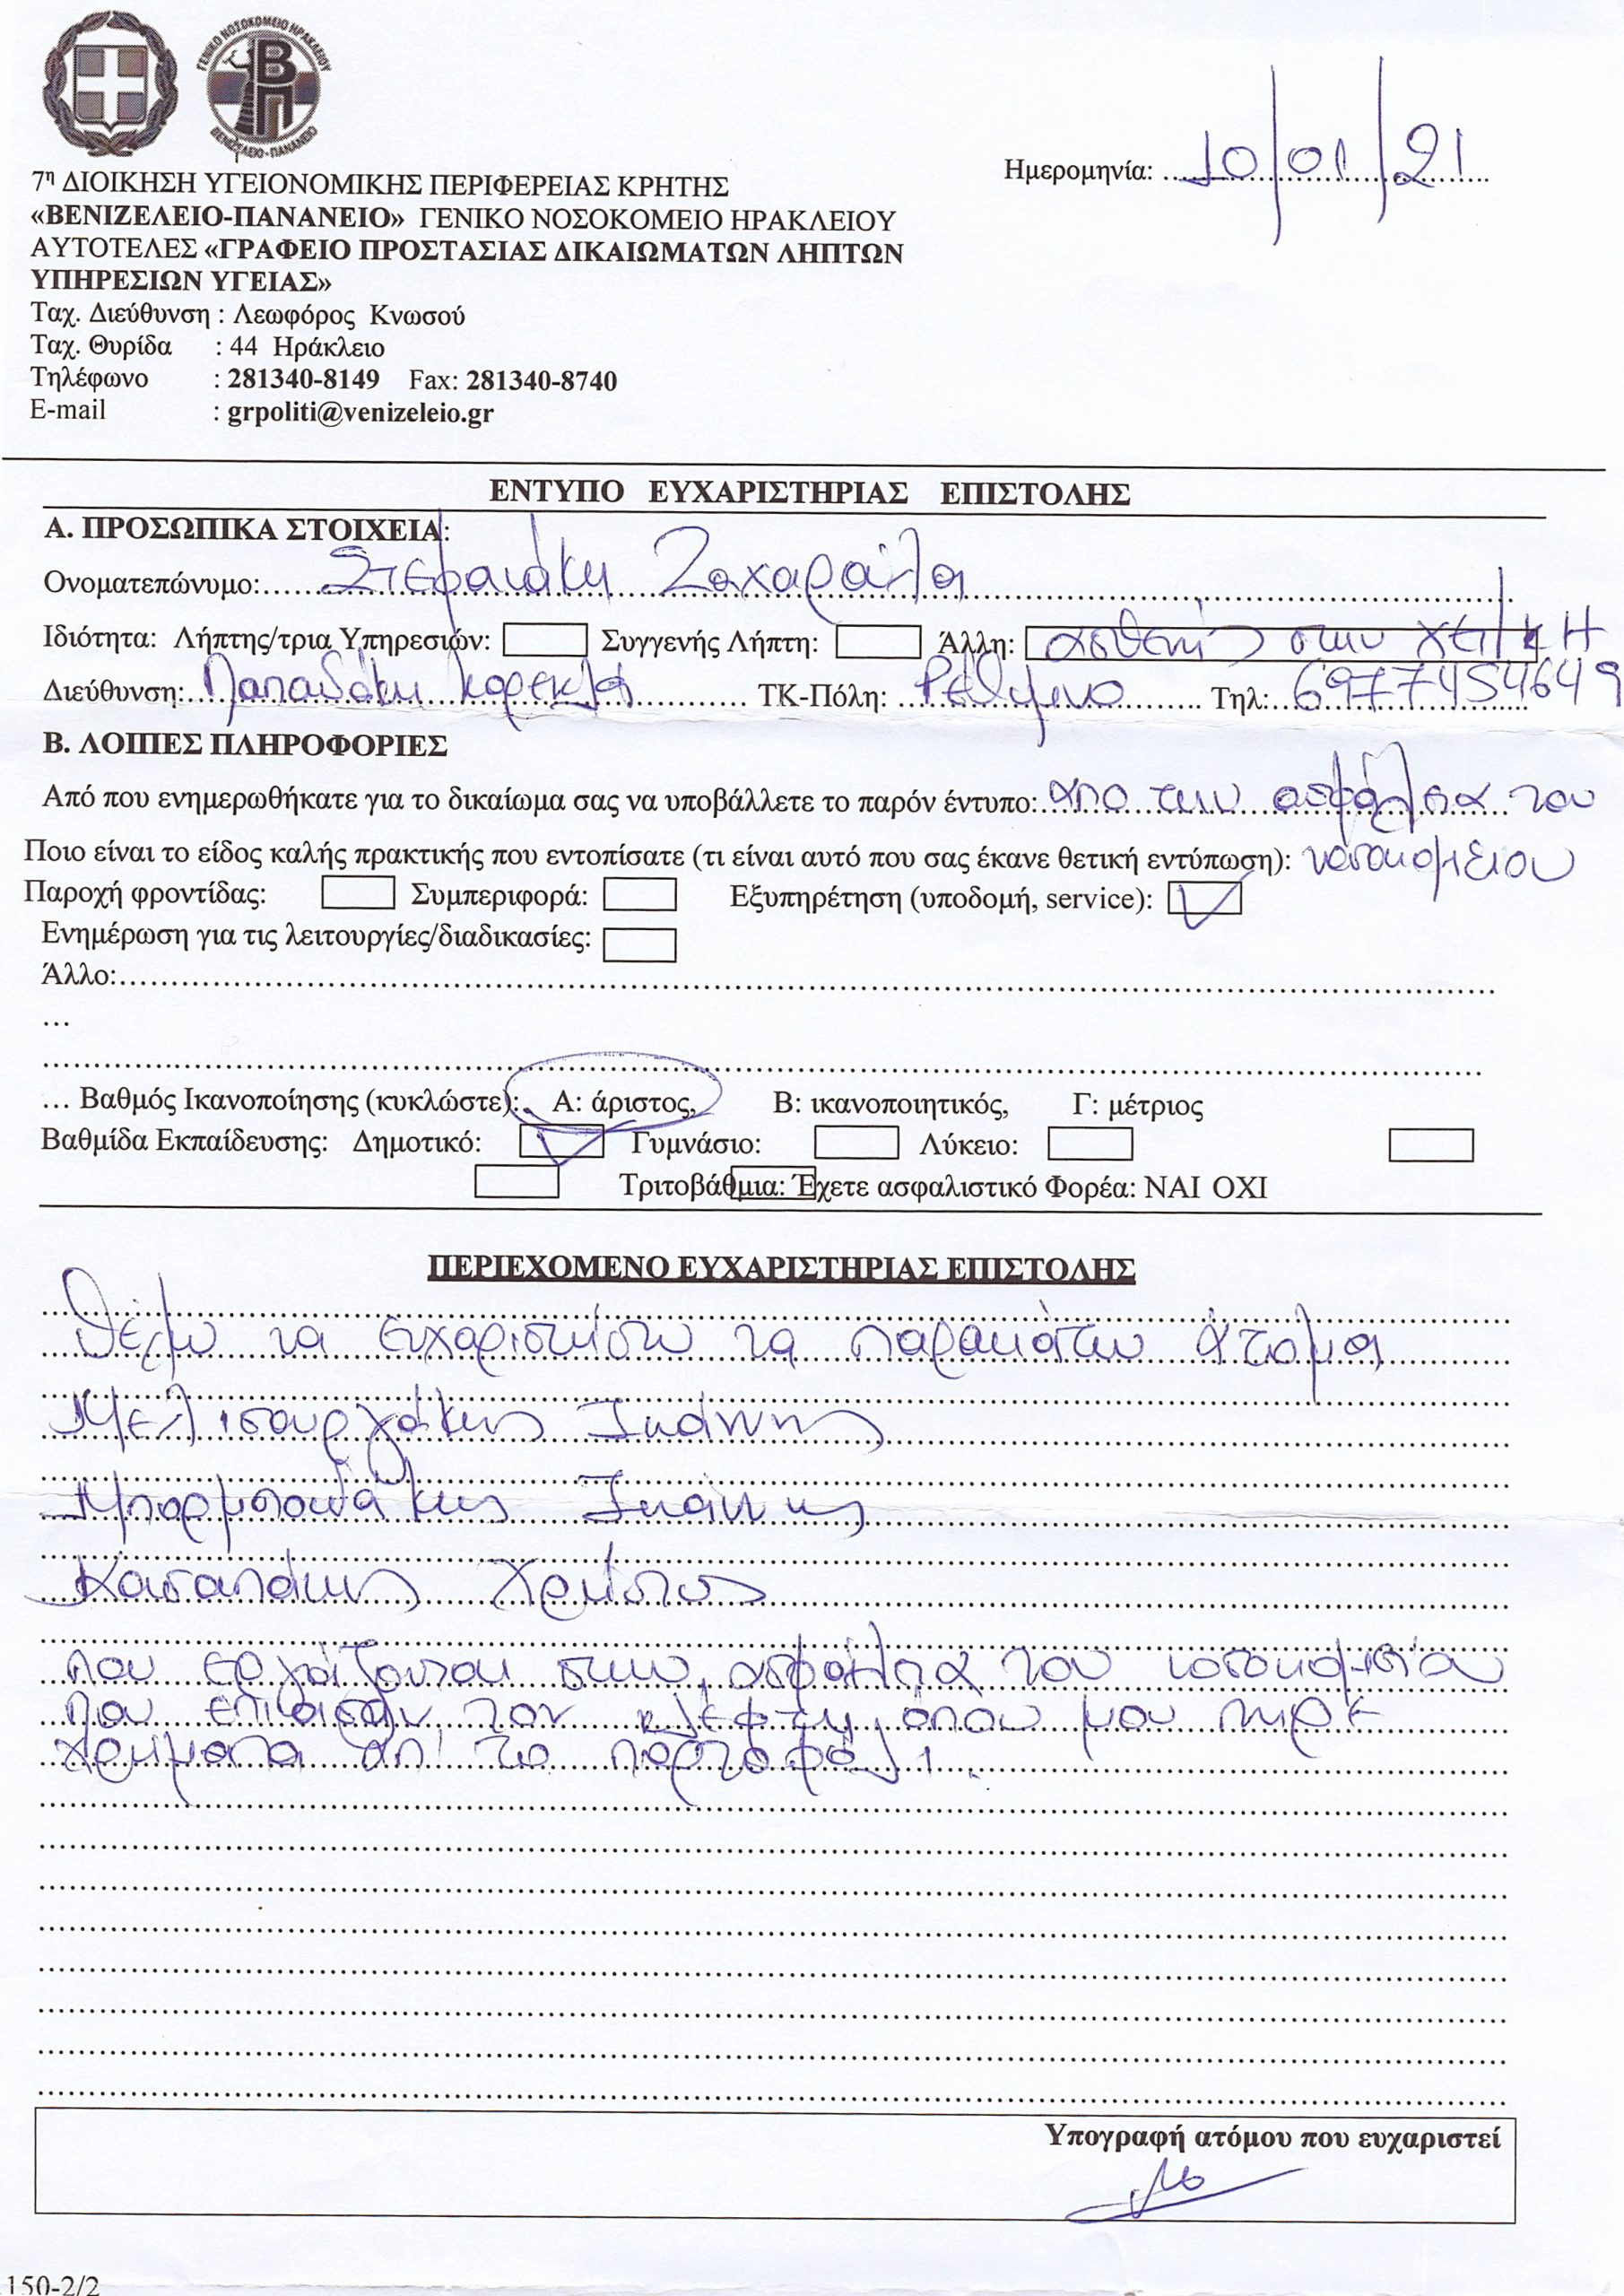 ΓΕΝΙΚΟ ΝΟΣΟΚΟΜΕΙΟ ΗΡΑΚΛΕΙΟΥ
ΒΠ
ΒΕΝΙΖΕΛΕΙΟ-ΠΑΝΑΝΕΙΟ
Ημερομηνία: 10/01/21
7η ΔΙΟΙΚΗΣΗ ΥΓΕΙΟΝΟΜΙΚΗΣ ΠΕΡΙΦΕΡΕΙΑΣ ΚΡΗΤΗΣ
«ΒΕΝΙΖΕΛΕΙΟ-ΠΑΝΑΝΕΙΟ» ΓΕΝΙΚΟ ΝΟΣΟΚΟΜΕΙΟ ΗΡΑΚΛΕΙΟΥ
ΑΥΤΟΤΕΛΕΣ «ΓΡΑΦΕΙΟ ΠΡΟΣΤΑΣΙΑΣ ΔΙΚΑΙΩΜΑΤΩΝ ΛΗΠΤΩΝ
ΥΠΗΡΕΣΙΩΝ ΥΓΕΙΑΣ»
Ταχ. Διεύθυνση : Λεωφόρος Κνωσού
Ταχ. Θυρίδα : 44 Ηράκλειο
Τηλέφωνο : 281340-8149 Fax: 281340-8740
E-mail : grpoliti@venizeleio.gr
ΕΝΤΥΠΟ ΕΥΧΑΡΙΣΤΗΡΙΑΣ ΕΠΙΣΤΟΛΗΣ
Α. ΠΡΟΣΩΠΙΚΑ ΣΤΟΙΧΕΙΑ:
Ονοματεπώνυμο: Στεφανάκη Ζαχαρούλα
Ιδιότητα: Λήπτης/τρια Υπηρεσιών: Συγγενής Λήπτη: Άλλη: ασθενής στην
Διεύθυνση: Παπαδάκη ΤΚ-Πόλη: Ρέθυμνο Τηλ: 6977454649
Β. ΛΟΙΠΕΣ ΠΛΗΡΟΦΟΡΙΕΣ
Από που ενημερωθήκατε για το δικαίωμα σας να υποβάλλετε το παρόν έντυπο: απο την ασφάλεια του
Ποιο είναι το είδος καλής πρακτικής που εντοπίσατε (τι είναι αυτό που σας έκανε θετική εντύπωση): νοσοκομείου
Παροχή φροντίδας: Συμπεριφορά: Εξυπηρέτηση (υποδομή, service): ✓
Ενημέρωση για τις λειτουργίες/διαδικασίες:
Άλλο:
…
… Βαθμός Ικανοποίησης (κυκλώστε): Α: άριστος, Β: ικανοποιητικός, Γ: μέτριος
Βαθμίδα Εκπαίδευσης: Δημοτικό: ✓ Γυμνάσιο: Λύκειο:
Τριτοβάθμια: Έχετε ασφαλιστικό Φορέα: ΝΑΙ ΟΧΙ
ΠΕΡΙΕΧΟΜΕΝΟ ΕΥΧΑΡΙΣΤΗΡΙΑΣ ΕΠΙΣΤΟΛΗΣ
Θέλω να ευχαριστήσω τα παρακάτω άτομα
Μελισουργάκης Ιωάννης
Μπορμπουδάκης Ιωάννης
Κασαπάκης Χρήστος
που εργάζονται στην ασφάλεια του νοσοκομείου
που επιασαν τον κλέφτη όπου μου πηρε
χρήματα απ' το πορτοφόλι.
Υπογραφή ατόμου που ευχαριστεί
150-2/2